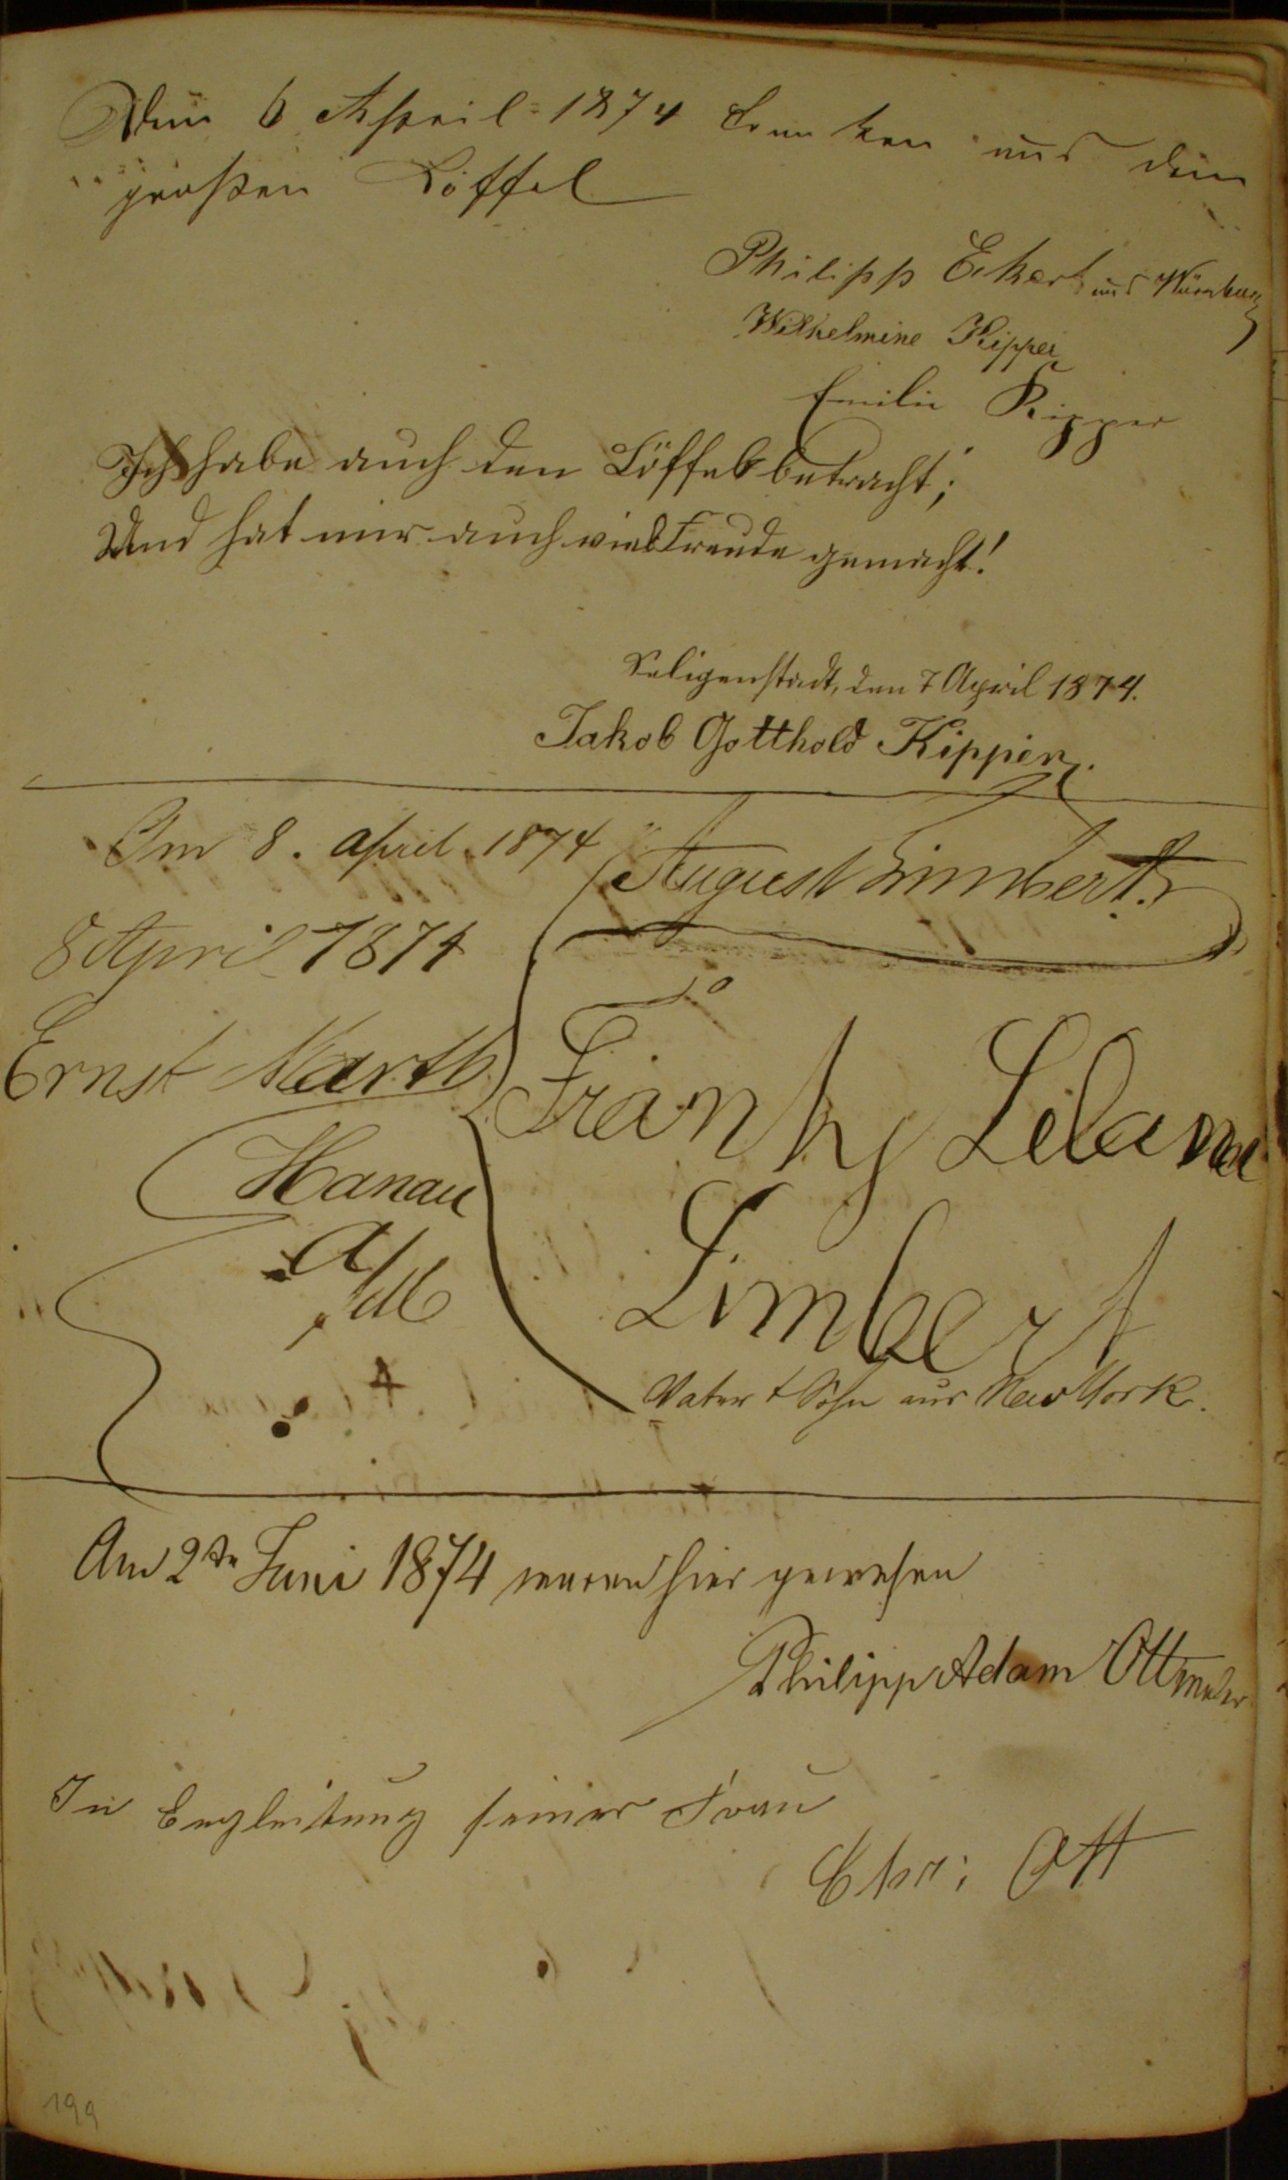 Den 6 April 1874 trunken aus dem
großen Löffel
Philipp Eckert aus Nürnberg
Wilhelmine Kipper
Emilie Kipper
Ich habe auch den Löffel betracht;
Und hat mir auch viel Freude gemacht!
Seligenstadt, den 7 April 1874.
Jakob Gotthold Kipper.
Am 8. April 1874
August Limbert.
8 April 1874
Ernst Marth
Frank Leland
Hanau
a/M
Limbert
Vater & Sohn aus New York.
Am 2tn Juni 1874 waren hier gewesen
Philipp Adam Ott
In Begleitung seiner Frau
Chr: Ott
199